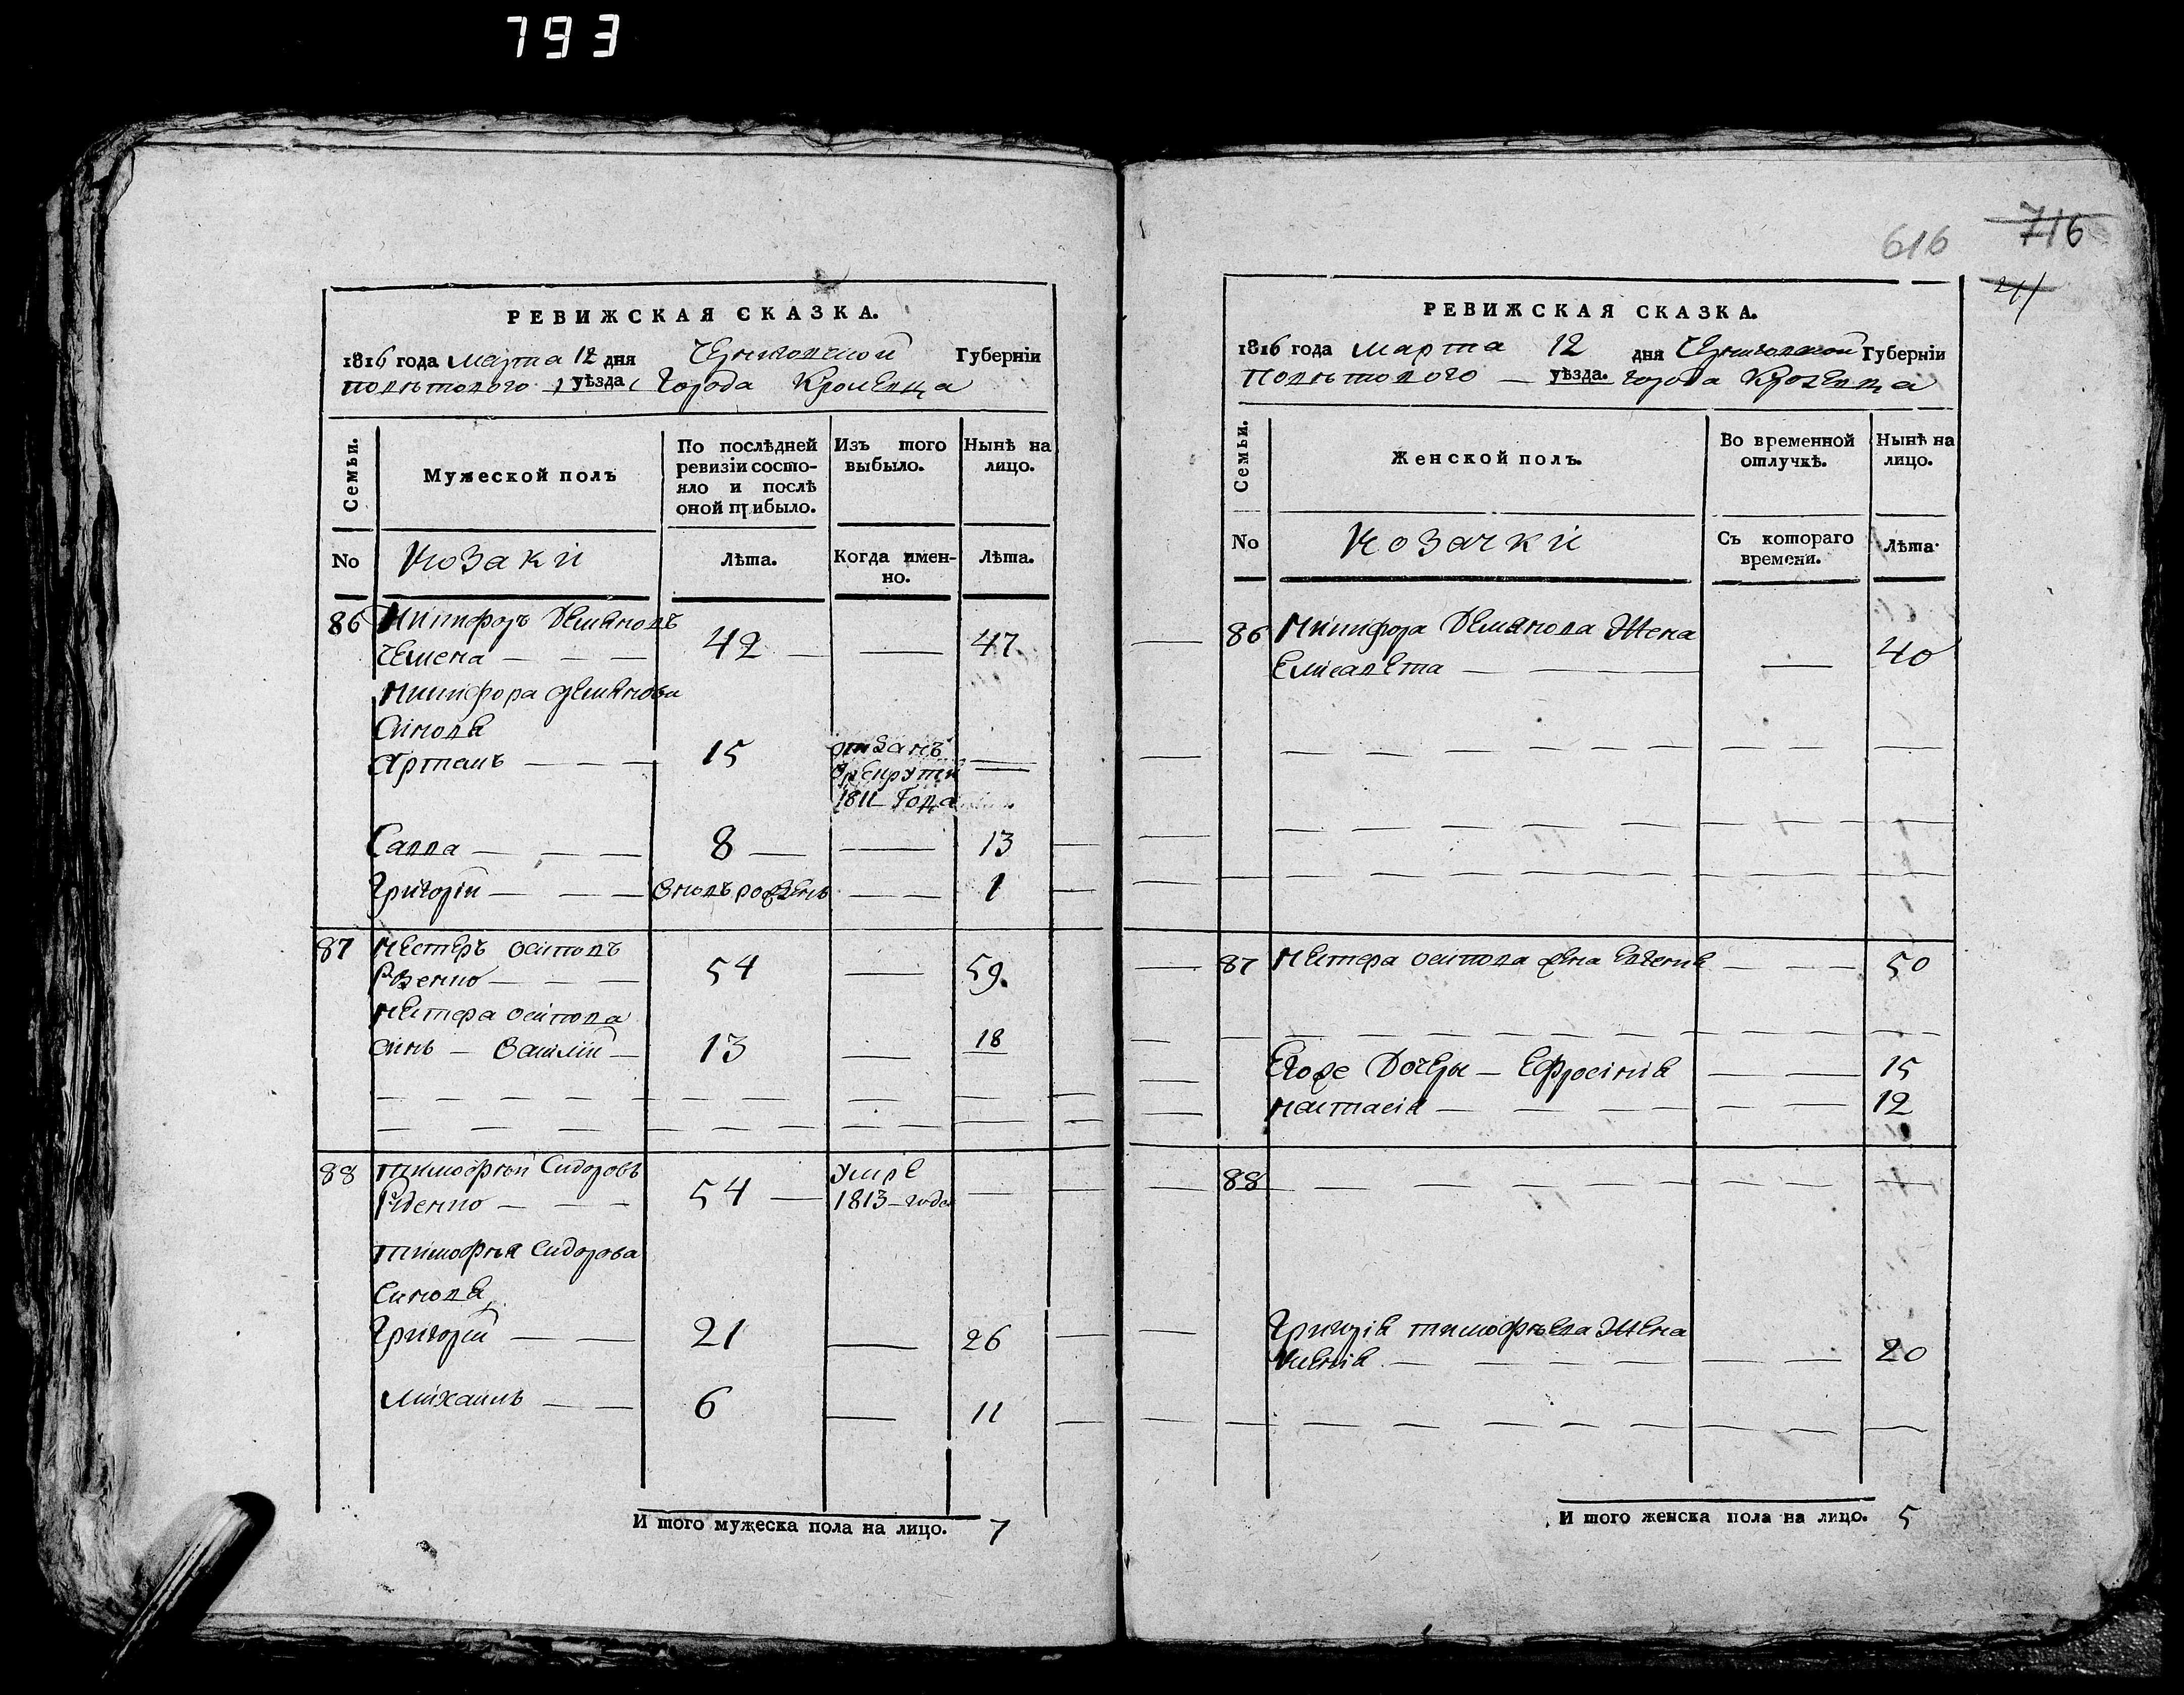 793
РЕВИЖСКАЯ СКАЗКА.
1816 года марта 12 дня Губерніи
повѣтового уѣзда Города Кролевца
Семьи.
Мужеской полъ
По послѣдней ревизіи состо-
яло и послѣ
оной прибыло.
Изъ того
выбыло.
Нынѣ на
лицо.
No
Козаки
Лѣта.
Когда имен-
но.
Лѣта.
86 Никифоръ Демяновъ
42 47
Никифора Демянова
Синовя
Артемъ 15 отданъ
врекруты
1811 Года
Савва 8 13
Григорій вновъ рожденъ 1
87 Нестеръ Осиповъ
54 59.
Нестера Осипова
синъ Василій 13 18
88 Тимофѣй Сидоровъ
54 умре
1813 года
Тимофѣя Сидорова
Синовя
Григорій 21 26
Михаилъ 6 11
И того мужеска пола на лицо. 7
616 716
РЕВИЖСКАЯ СКАЗКА.
1816 года марта 12 дня Губерніи
Повѣтового уѣзда. города Кролевца
Семьи.
Женской полъ.
Во временной
отлучкѣ.
Нынѣ на
лицо.
No
Козачки
Съ котораго
времени.
Лѣта.
86 Никифора Демянова Жена
Елисавета 40
87 Нестера Осипова жена Евгения 50
Егоже Дочеры Ефросиния 15
Настасия 12
88
Григория Тимофѣева Жена
20
И того женска пола на лицо. 5